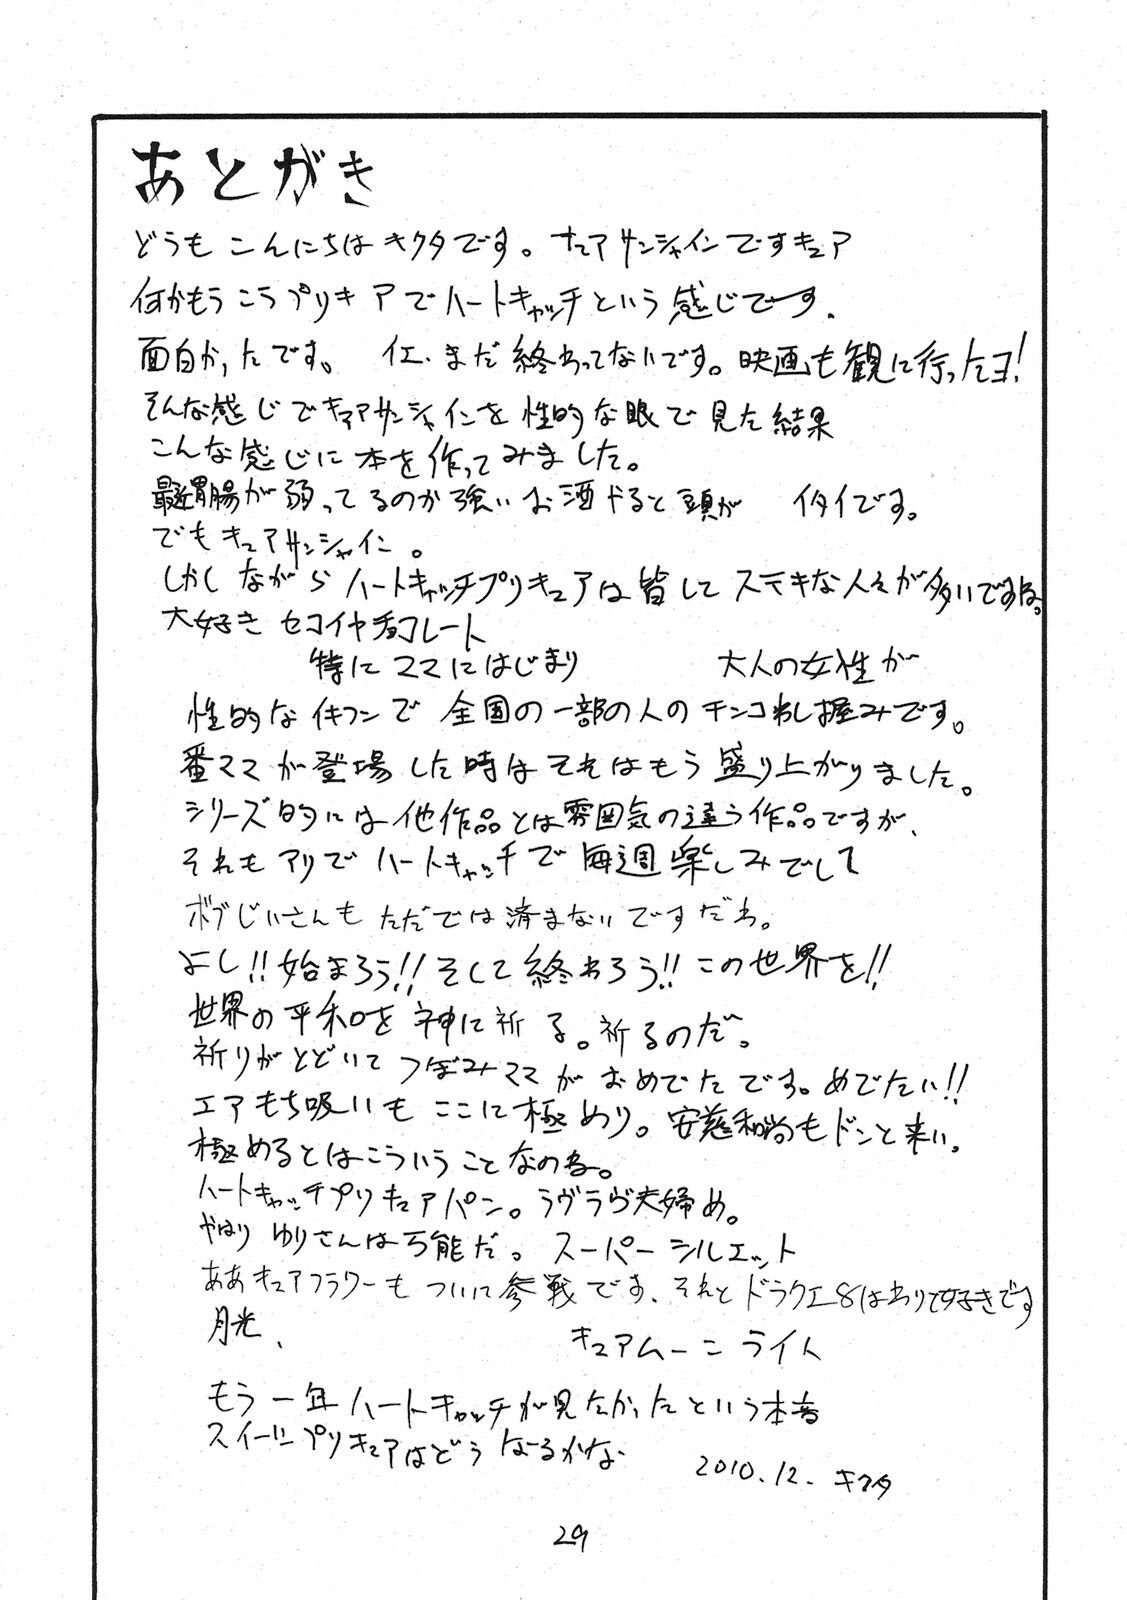 あとがき
どうもこんにちはキクタです。キュアサンシャインですキュア
何かもうこうプリキアでハートキャッチという感じです.
面白かったです。 イエ、まだ終わってないです。映画も観に行ったヨ!
そんな感じでキュアサンシャインを性的な眼で見た結果
こんな感じに本を作ってみました。
最近胃腸が弱ってるのか強いお酒やると頭が イタイです。
でもキュアサンシャイン。
しかしながらハートキャッチプリキュアは皆してステキな人々が多いですね。
大好きセコイヤチョコレート
特にママにはじまり 大人の女性が
性的なイキフンで全国の一部の人のチンコわし握みです。
番ママが登場した時はそれはもう盛り上がりました。
シリーズ的には他作品とは雰囲気の違う作品ですが、
それもアリでハートキャッチで毎週楽しみでして
ボブじいさんもただでは済まないですだわ。
よし!!始まろう!!そして終わろう!!この世界を!!
世界の平和を神に祈る。祈るのだ。
祈りがとどいてつぼみママがおめでたです。めでたい!!
エアもち吸いもここに極めり。安慈和尚もドンと来い。
極めるとはこういうことなのね。
ハートキャッチプリキュアパン。ラヴラヴ夫婦め。
やはりゆりさんは万能だ。スーパーシルエット
ああキュアフラワーもついに参戦です、それとドラクエ8はわりと好きです
月光、 キュアムーンライト
もう一年ハートキャッチが見たかったという本音
スイートプリキュアはどうなるかな
2010.12. キクタ
29